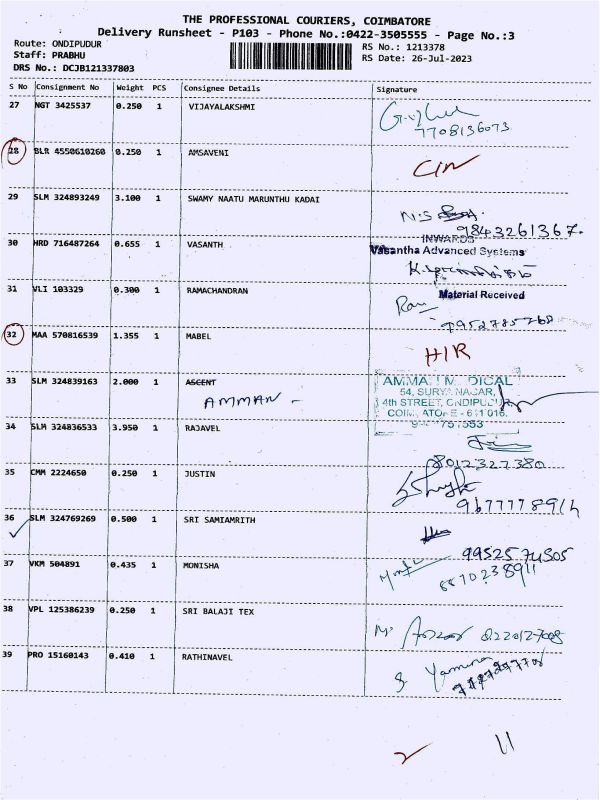 THE PROFESSIONAL COURIERS, COIMBATORE
Delivery Runsheet - P103 - Phone No.:0422-3505555 - Page No.:3
Route: ONDIPUDUR
RS No.: 1213378
Staff: PRABHU
RS Date: 26-Jul-2023
DRS No.: DCJB121337803
S No Consignment No Weight PCS Consignee Details Signature
27 NGT 3425537 0.250 1 VIJAYALAKSHMI
7708136073
28 BLR 4550610260 0.250 1 AMSAVENI
29 SLM 324893249 3.100 1 SWAMY NAATU MARUNTHU KADAI
N.S
9843261367.
30 HRD 716487264 0.655 1 VASANTH
INWARDS
Vasantha Advanced Systems
31 VLI 103329 0.300 1 RAMACHANDRAN
Material Received
Ram
9952785268
32 MAA 570816539 1.355 1 MABEL
33 SLM 324839163 2.000 1 ASCENT
AMMAN -
54, SURYA NAGAR,
4th STREET, ONDIPUDUR
34 SLM 324836533 3.950 1 RAJAVEL
8012327380
35 CMM 2224650 0.250 1 JUSTIN
36 SLM 324769269 0.500 1 SRI SAMIAMRITH
9952574505
37 VKM 504891 0.435 1 MONISHA
38 VPL 125386239 0.250 1 SRI BALAJI TEX
39 PRO 15160143 0.410 1 RATHINAVEL
Yamuna
2
11